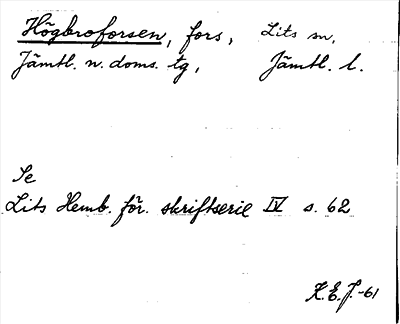 Högbroforsen, fors, Lits sn,
Jämtl. n. doms. tg, Jämtl. l.
Se
Lits Hemb. för. skriftserie IV s. 62
K.E.J.-61